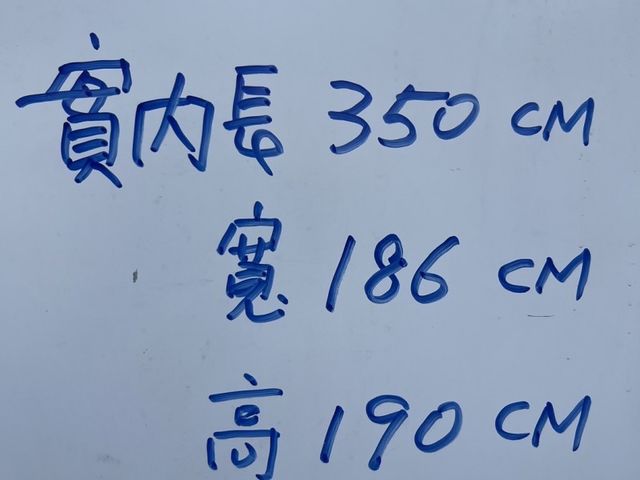 實內長 350 CM
寬 186 CM
高 190 CM